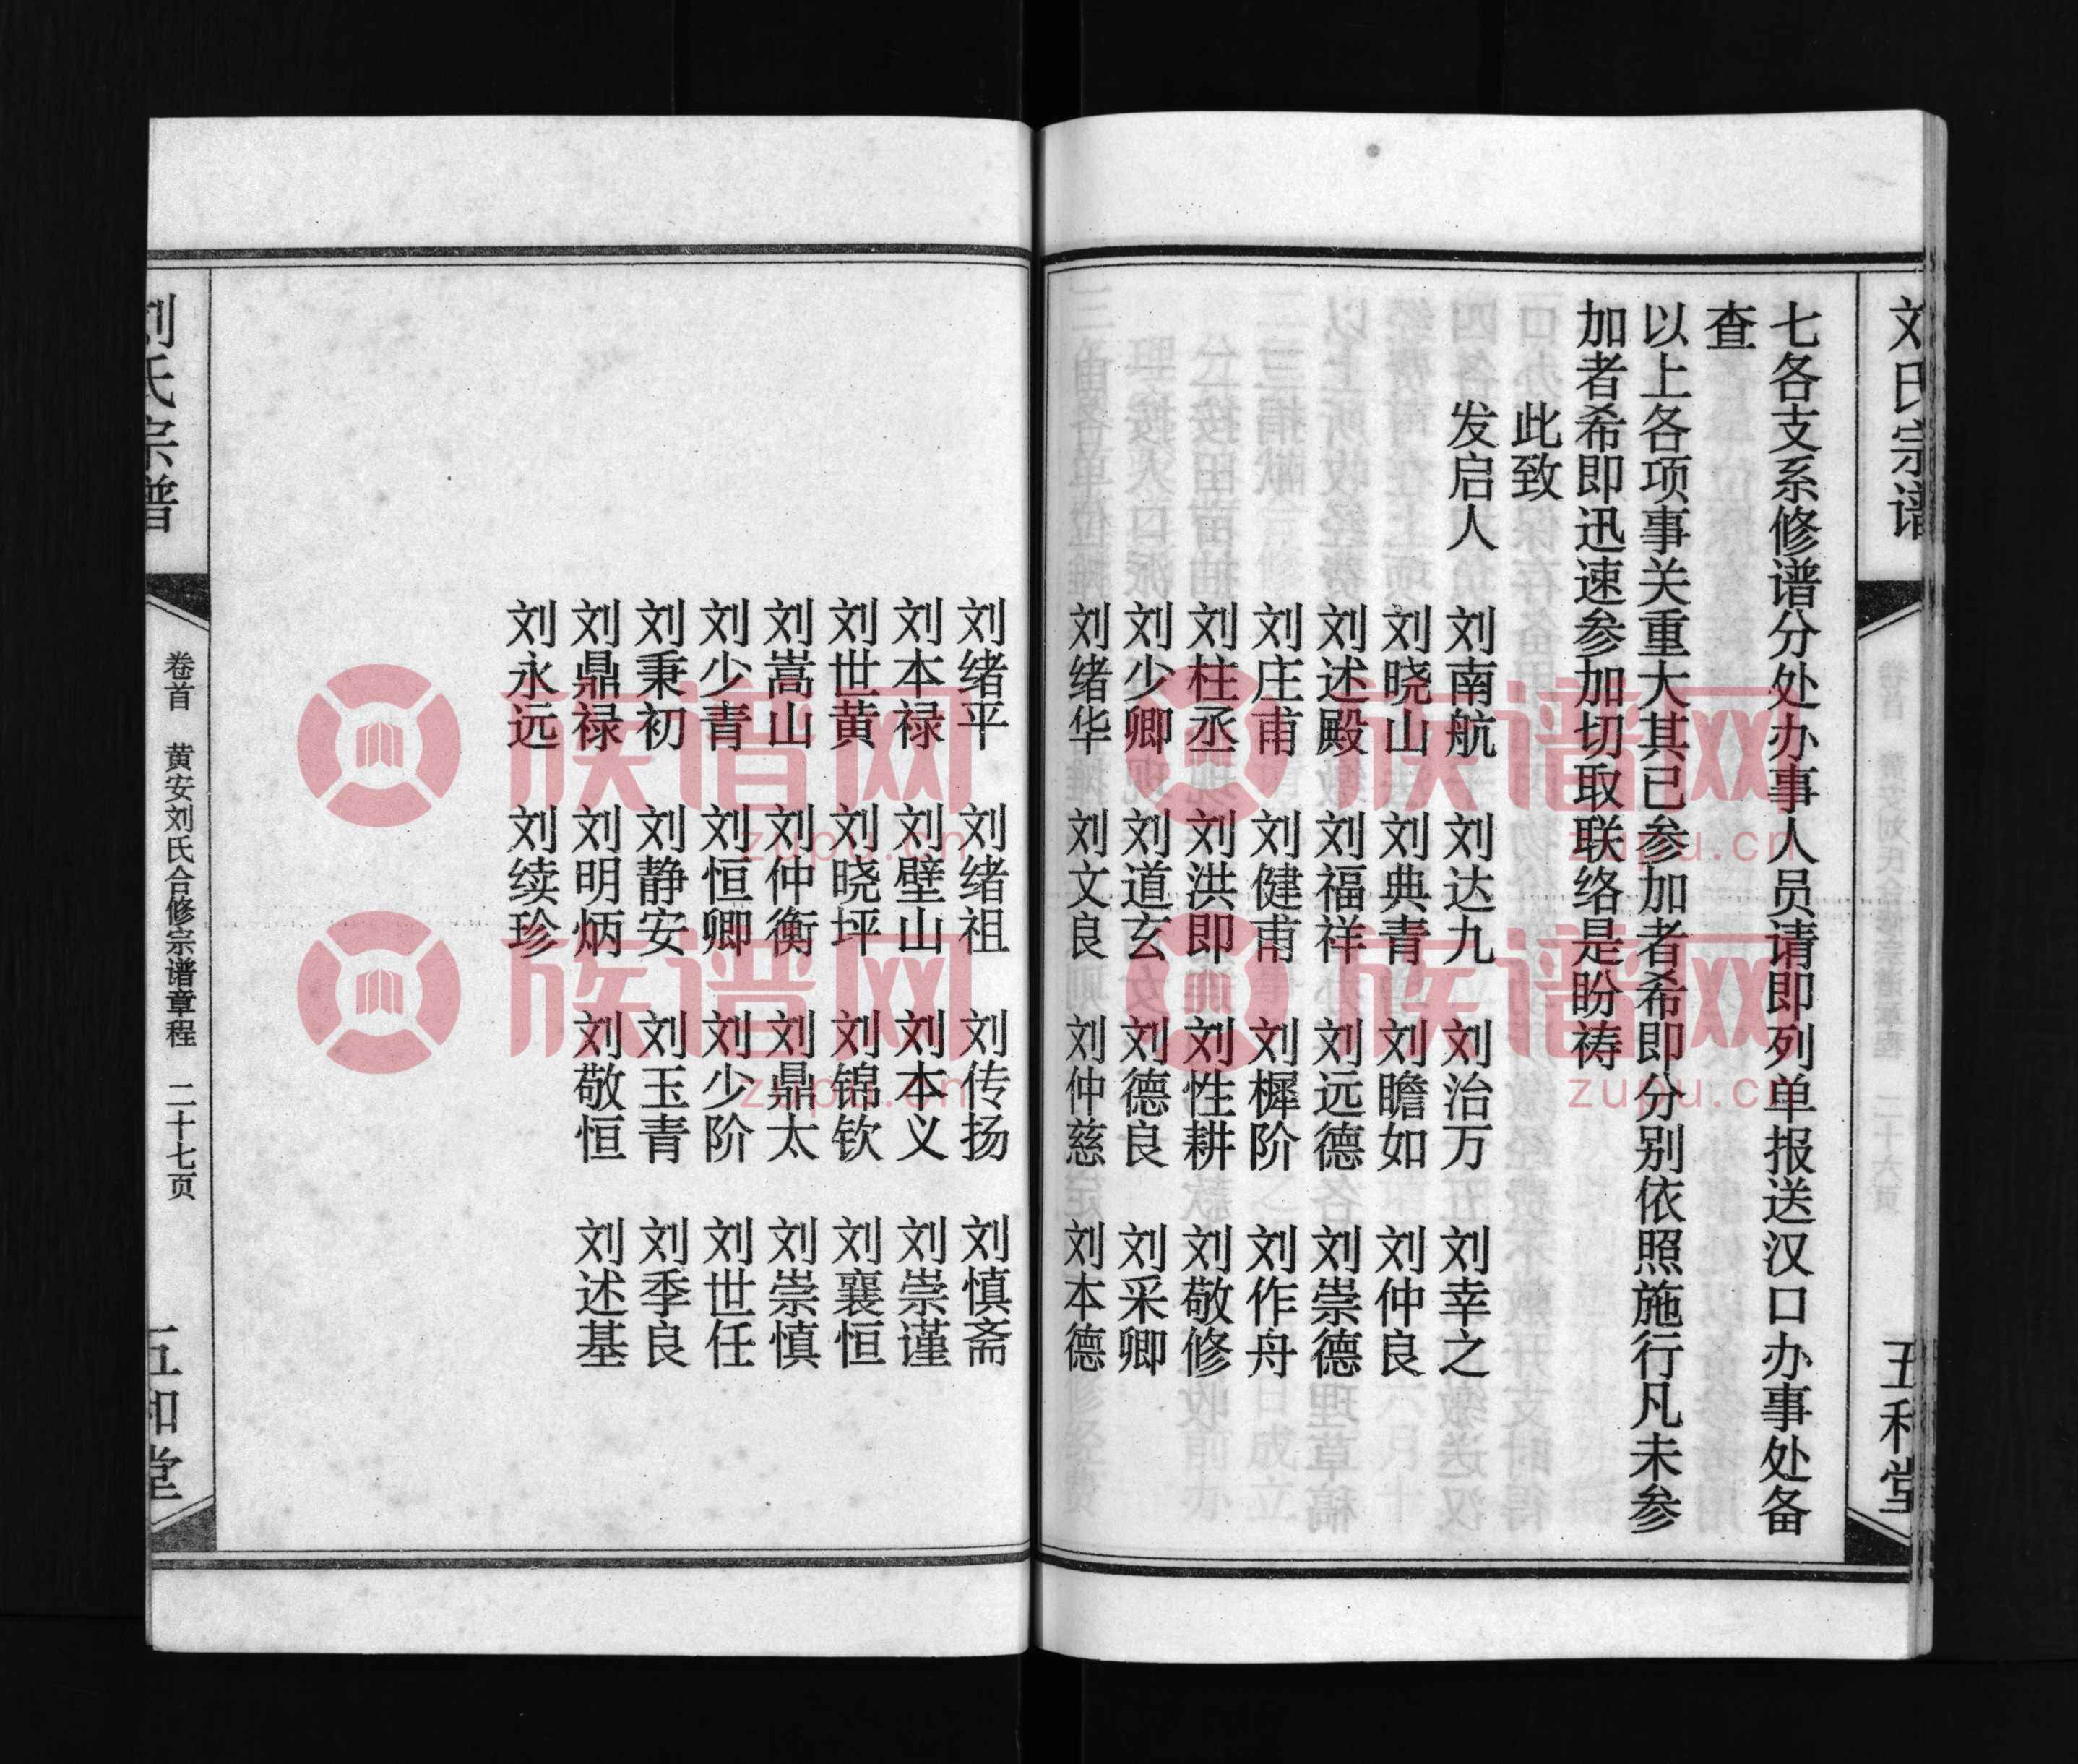 刘氏宗谱
五和堂
七各支系修谱分处办事人员请即列单报送汉口办事处备
查
以上各项事关重大其已参加者希即分别依照施行凡未参
加者希即迅速参加切取联络是盼祷
此致
发启人
刘南航 刘达九 刘治万 刘幸之
刘晓山 刘典青 刘瞻如 刘仲良
刘述殿 刘福祥 刘远德 刘崇德
刘庄甫 刘健甫 刘樨阶 刘作舟
刘柱丞 刘洪即 刘性耕 刘敬修
刘少卿 刘道玄 刘德良 刘采卿
刘绪华 刘文良 刘仲慈 刘本德
刘绪平 刘绪祖 刘传扬 刘慎斋
刘本禄 刘壁山 刘本义 刘崇谨
刘世黄 刘晓坪 刘锦钦 刘襄恒
刘嵩山 刘仲衡 刘鼎太 刘崇慎
刘少青 刘恒卿 刘少阶 刘世任
刘秉初 刘静安 刘玉青 刘季良
刘鼎禄 刘明炳 刘敬恒 刘述基
刘永远 刘续珍
刘氏宗谱
卷首 黄安刘氏合修宗谱章程 二十七页
五和堂
族谱网
zupu.cn
族谱网
zupu.cn
族谱网
zupu.cn
族谱网
zupu.cn